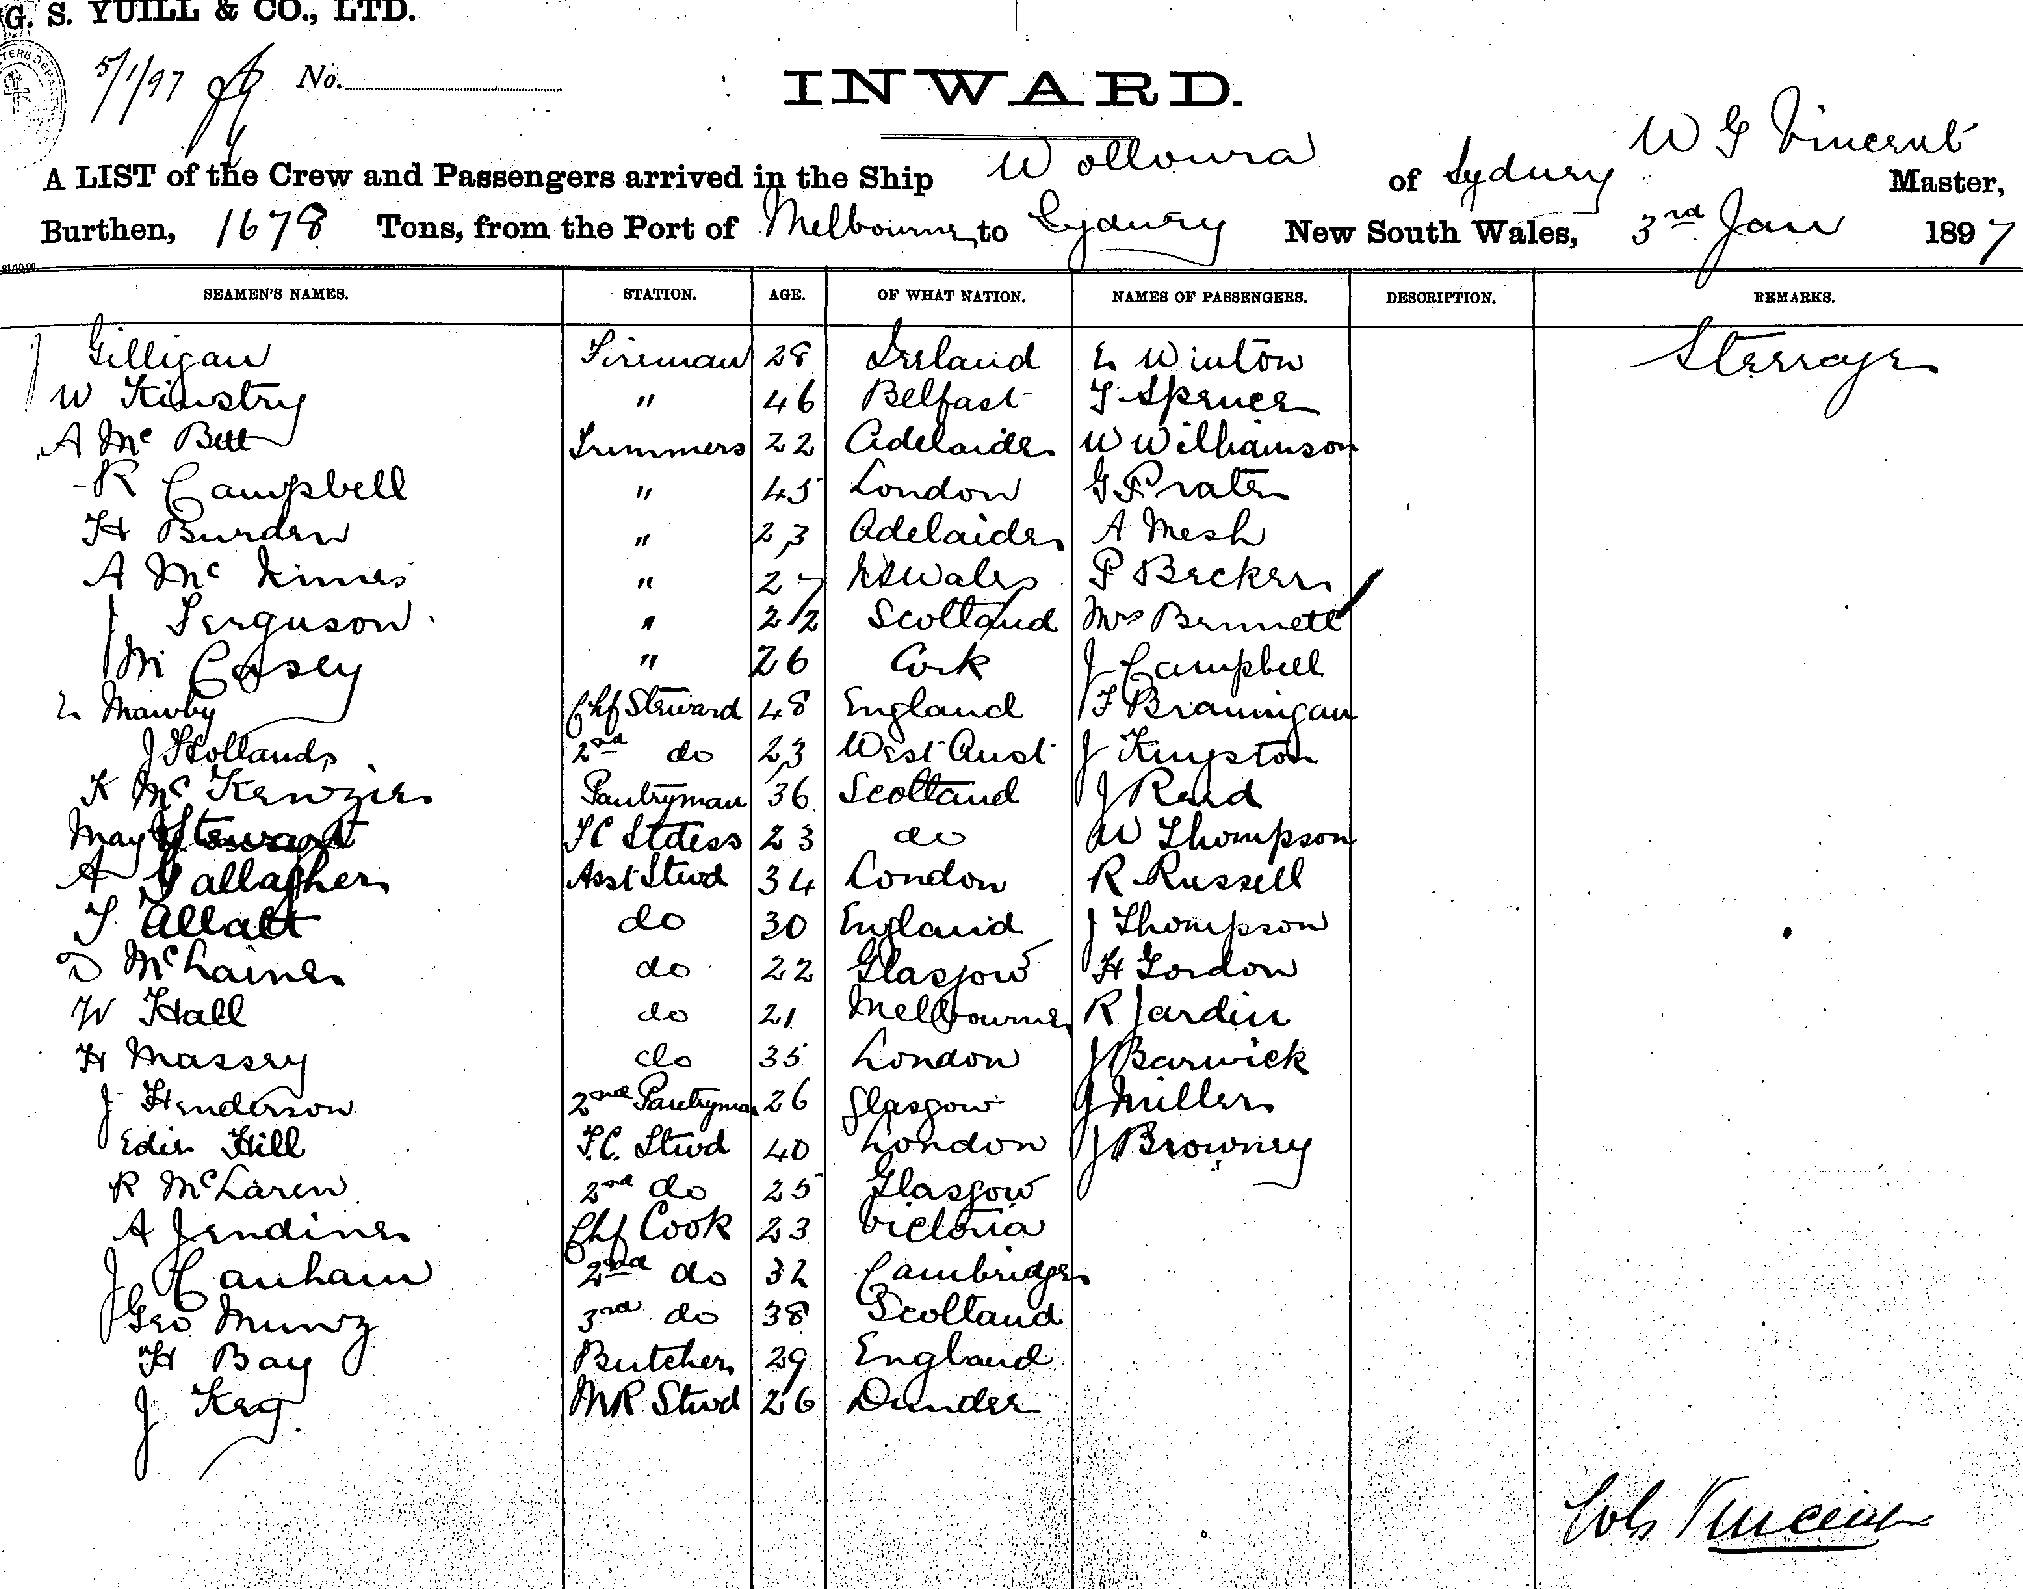 G. S. YUILL & CO., LTD.
5/1/97 No.
INWARD.
W G Vincent
A LIST of the Crew and Passengers arrived in the Ship Wolloura of Sydney Master,
Burthen, 1678 Tons, from the Port of Melbourne to Sydney New South Wales, 3rd Jan 1897
SEAMEN'S NAMES. STATION. AGE. OF WHAT NATION. NAMES OF PASSENGERS. DESCRIPTION. REMARKS.
J Gilligan Fireman 28 Ireland E Winton Steerage
W Kinstry " 46 Belfast T Spencer
A Mc Bett Trimmers 22 Adelaide W Williamson
R Campbell " 45 London G Prate
H Burden " 23 Adelaide A Mesh
A Mc " 27 NSWales P Becker
J Ferguson " 22 Scotland Mrs Bennett
M Casey " 26 Cork J Campbell
E Mawby Chf Steward 48 England F Brannigan
J Hollands 2nd do 23 West Aust J Kingston
K McKenzie Pantryman 36 Scotland J Reid
May Stewart Stdess 23 do W Thompson
A Gallagher Asst Stwd 34 London R Russell
T Allatt do 30 England J Thompson
D McLaine do 22 Glasgow H Gordon
W Hall do 21 Melbourne R Jardin
H Massey do 35 London J Barwick
J Henderson 2nd Pantryman 26 Glasgow G Miller
Edie Hill F.C. Stwd 40 London J Browney
R McLaren 2nd do 25 Glasgow
A Jendine Chf Cook 23 Victoria
J Canham 2nd do 32 Cambridge
Geo Munz 3rd do 38 Scotland
H Bay Butcher 29 England
J Keg MR Stwd 26 Dundee
Vincent